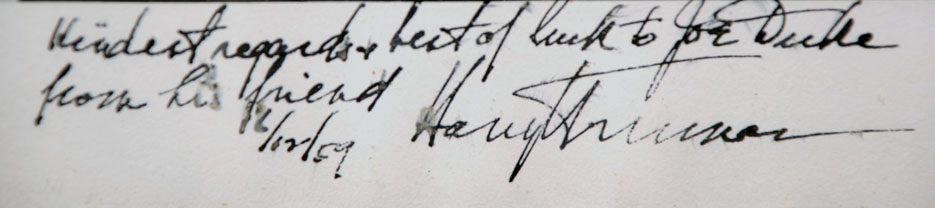 Kindest regards & best of luck to Joe Duke
from his friend Harry Truman
6/12/59